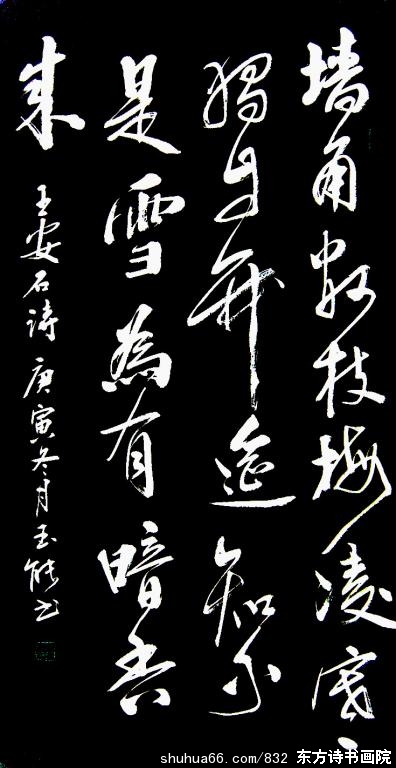 墙角数枝梅凌寒
独自开遥知不
是雪為有暗香
来 王安石诗 庚寅冬月玉能书
shuhua66.com/832 东方诗书画院